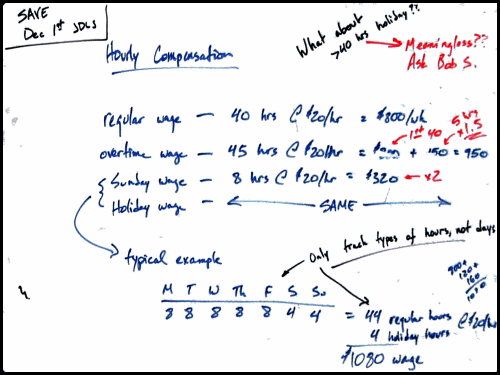 SAVE
Dec 1st JDCS
What about
>40 hrs holiday??
Meaningless??
Ask Bob S.
Hourly Compensation
regular wage – 40 hrs @ $20/hr = $800/wk
5 hrs
1st 40 ×1.5
overtime wage – 45 hrs @ $20/hr = + 150 = 950
Sunday wage – 8 hrs @ $20/hr = $320 ×2
Holiday wage – SAME
Only track types of hours, not days
typical example
M T W Th F S Su
8 8 8 8 8 4 4 = 44 regular hours
4 holiday hours @ $20/hr
$1080 wage
120+
160